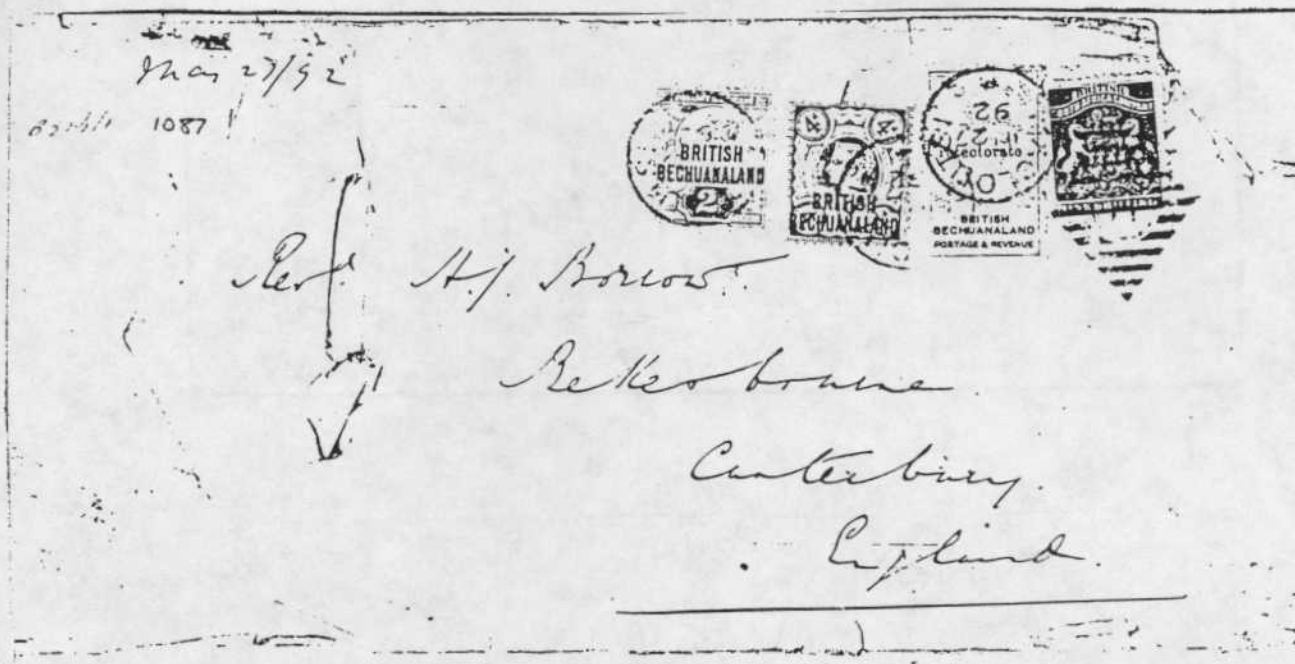 Mar 27/92
1087
BRITISH
BECHUANALAND
2
4 4
BRITISH
BECHUANALAND
92
BRITISH
BECHUANALAND
POSTAGE & REVENUE
BRITISH
Revd. H.J. Borrow.
Bekesbourne
Canterbury.
England.